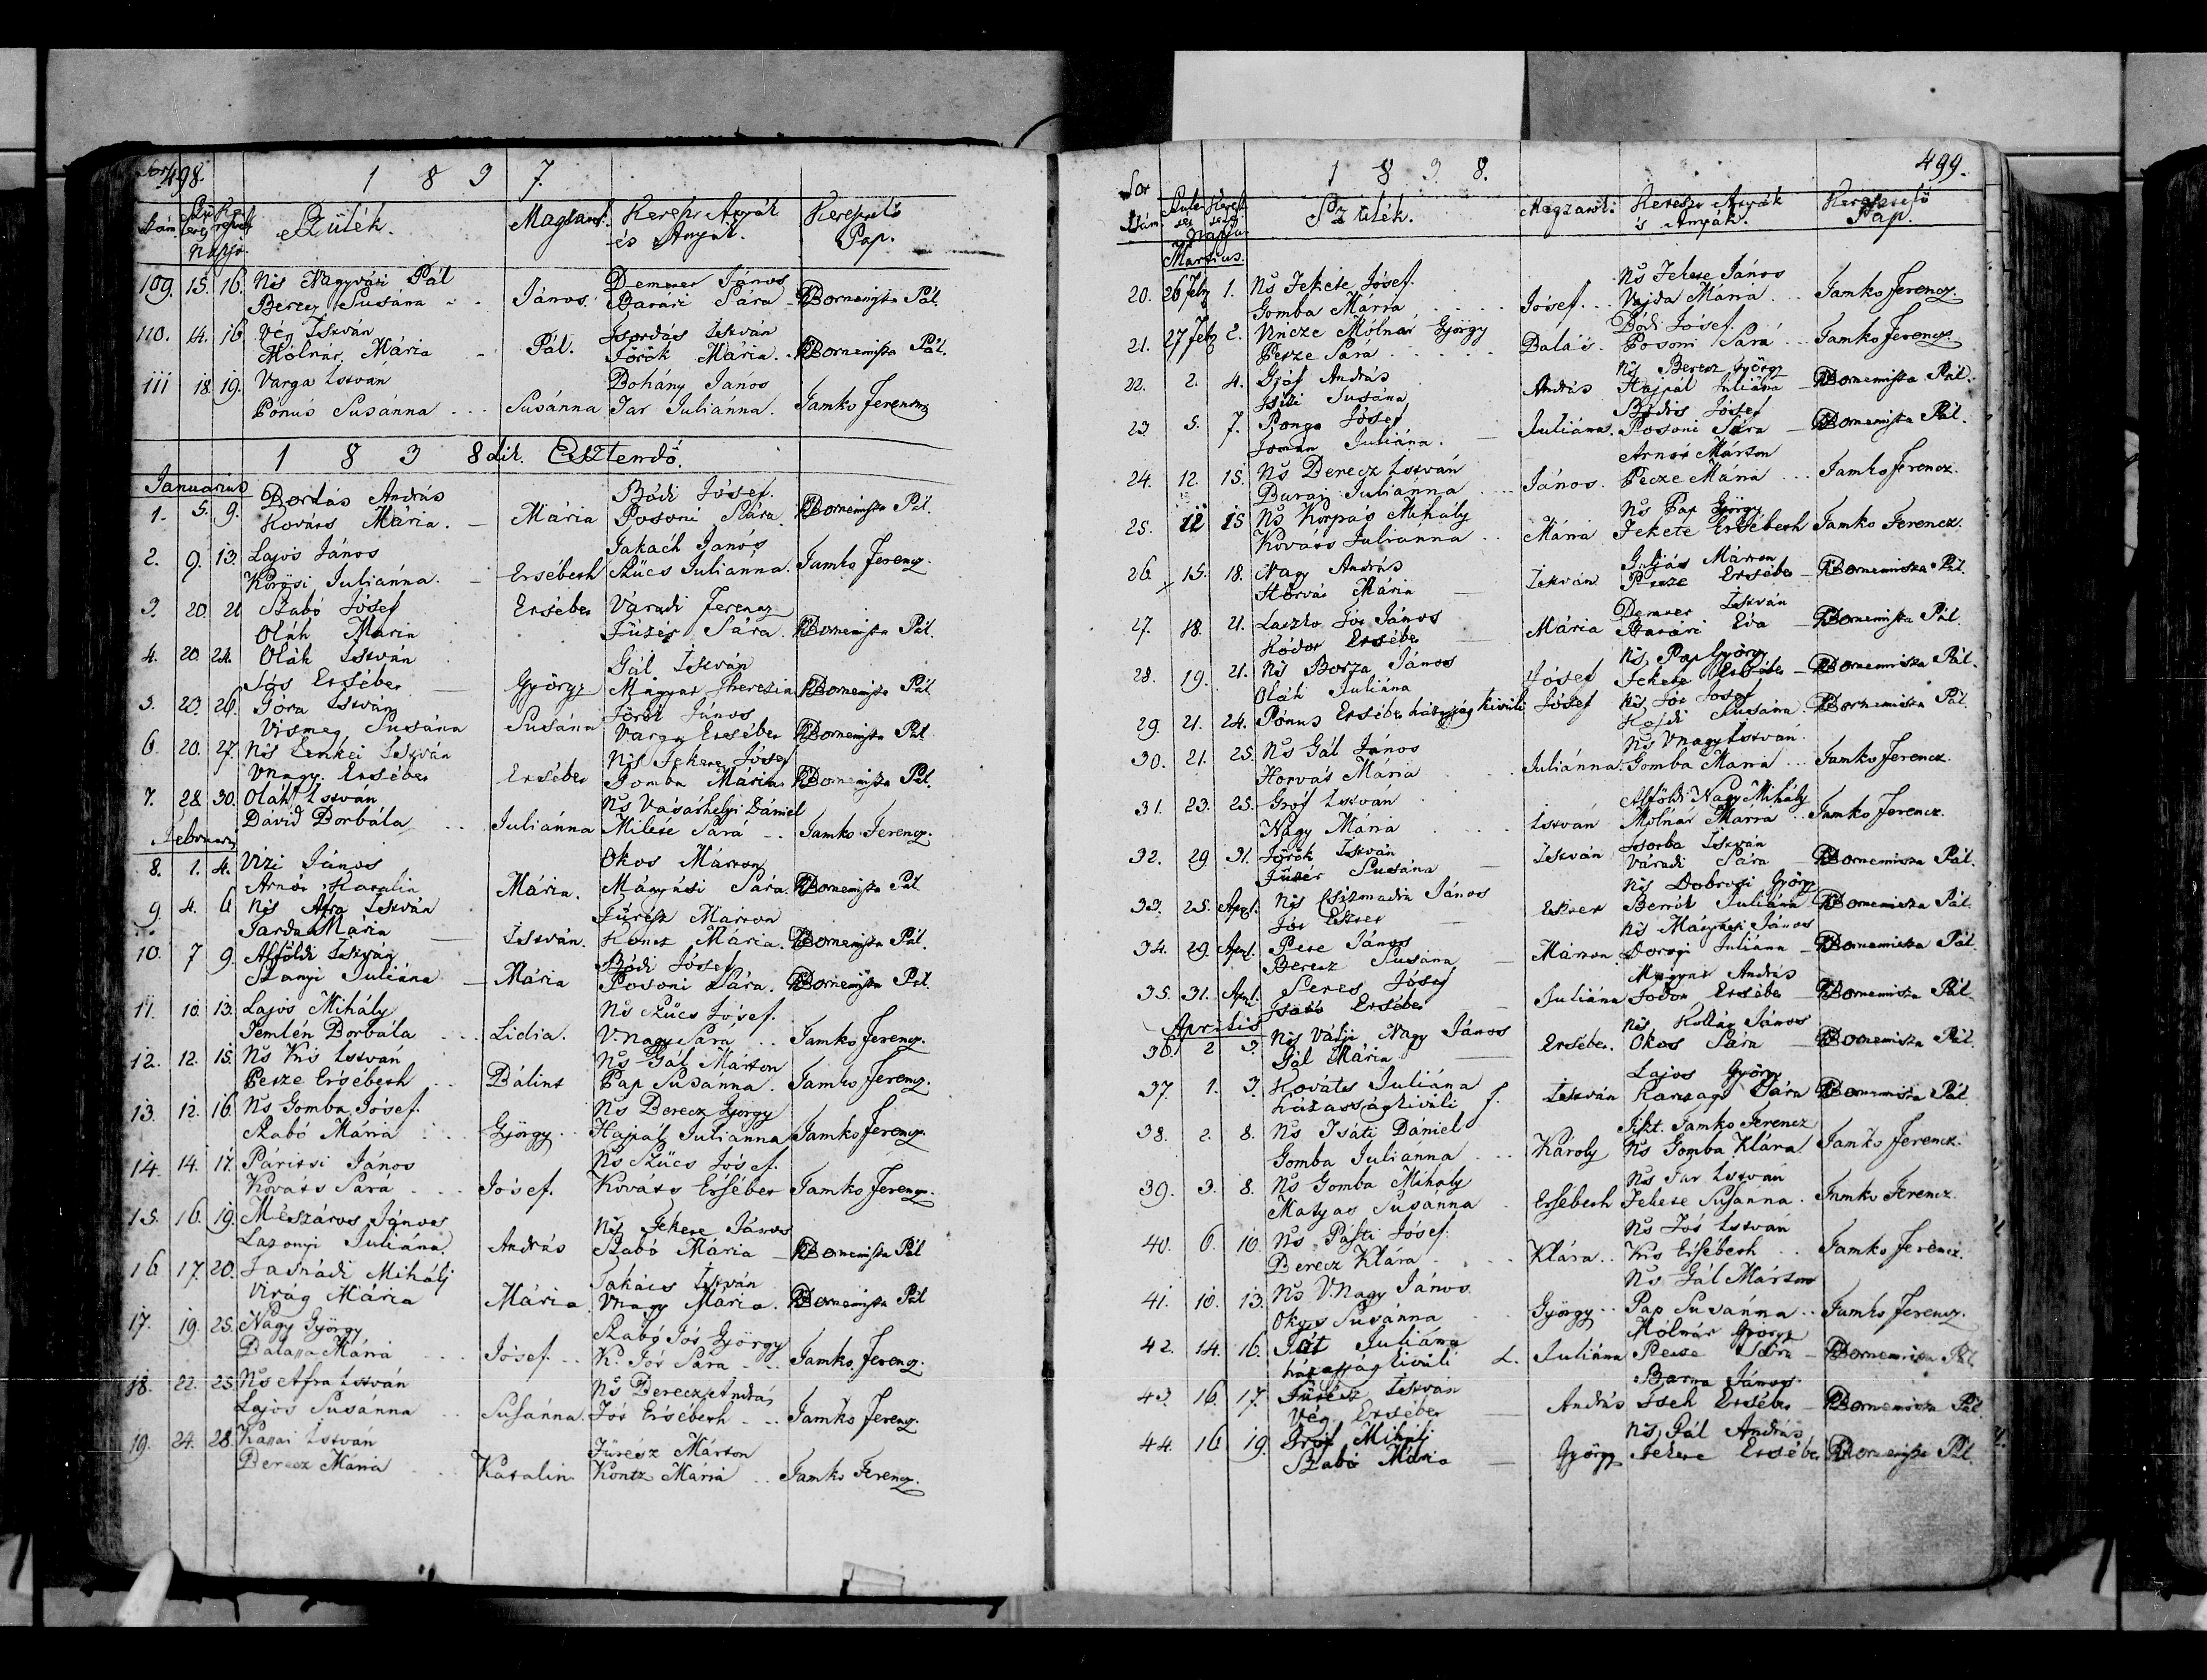 498.
1 8 3 7.
Szülék. Magzatok. Kereszt Atyák és Anyák. Keresztelő Pap.
Napja
109. 15. 16. Ns Nagyvári Pál
Berecz Susána János. Demeter János Barári Sára Bornemissza Pál.
110. 14. 16. Vég István
Mólnár Mária Pál. Csordás István Török Mária. Bornemissza Pál.
111 18. 19. Varga István
Pónus Susánna Susánna Bohány János Tar Juliánna. Tamko Ferencz
1 8 3 8dik Esztendő.
Januárius
1. 5. 9. Bordás András
Kováts Mária. Mária Bódi Jósef. Posoni Sára Bornemissza Pál.
2. 9. 13. Lajos János
Körösi Juliánna. Ersébeth Takách János Szűcs Julianna. Tamko Ferencz.
3. 20. 21 Szabó Jósef
Oláh Maria Ersébet Váradi Ferencz Füzér Sára. Bornemissza Pál.
4. 20. 24. Oláh István
Sós Ersébet György Gál István Magyar Therezia Bornemissza Pál
5. 23. 26. Tóra István
Vismeg Susána Susána Török János Varga Ersébet Bornemissza Pál
6. 20. 27. Ns Lenkei István
Vnagy Ersébet Ersébet Ns Fekete Jósef Gomba Mária Bornemissza Pál.
7. 28. 30. Oláh István
Dávid Borbála Juliánna Ns Vásárhelyi Dániel Milete Sárá Tamko Ferencz.
Februarius
8. 1. 4. Vizi János
Arnót Katalin Mária. Okos Márton Mányási Sára. Bornemissza Pál
9 4. 6 Ns Afra István
Tarda Mária István. Fűrész Márton Kontz Mária. Bornemissza Pál.
10. 7 9. Alföldi István
Szanyi Juliána Mária Bódi Jósef Posoni Sára. Bornemissza Pál.
11. 10. 13. Lajos Mihály
Temlén Borbála Lidia. Ns Szűcs Jósef. V.nagy Sára Tamko Ferencz.
12. 12. 15. Ns Kis István
Petze Ersébeth Bálint Ns Gál Márton Pap Susánna. Tamko Ferencz.
13. 12. 16. Ns Gomba Jósef.
Szabó Mária György Ns Berecz György Hajpál Julianna Tamko Ferencz.
14 14. 17. Páritsi János
Kováts Sárá Jósef. Ns Szücs Jósef. Kováts Ersébet Tamko Ferencz.
15. 16. 19. Mészáros János
Lazonyi Juliána. András Ns Fekete János Szabó Mária Bornemissza Pál
16 17. 20. Jasnádi Mihálj
Virag Mária Mária Takács István Vnagy Mária. Bornemissza Pál
17. 19. 25. Nagy György
Balassa Mária Jósef. Szabó Jós György K. Jós Sára Tamko Ferencz.
18. 22. 25. Ns Afra István
Lajos Susánna Susánna. Ns Berecz András Jós Ersébeth Tamko Ferencz.
19. 24. 28. Kassai István
Berecz Mária Katalin Fürész Márton Kontz Mária Tamko Ferencz.
499.
1 8 3 8.
Sor Szám Szülék. Magzatok: Kereszt Atyák és Anyák. Keresztelő Pap.
Napja
Martius.
20. 26 Feb 1. Ns Fekete Jósef.
Gomba Mária Jósef. Ns Fekete János Vajda Mária Tamko Ferencz.
21. 27 Feb 2. Vincze Mólnár György
Petze Sára Balás. Bódi Jósef. Posoni Sárá Tamko Ferencz.
22. 2. 4. Gróf András
Susána András Ns Berecz György Hajpál Juliána Bornemissza Pál.
23 5. 7. Ponga Jósef
Juliána. Juliána. Bódis Jósef Posoni Sára Bornemissza Pál.
24. 12. 15. Ns Berecz István
Buray Juliánna János. Arnót Márton Petze Mária Tamko Ferencz.
25. 12 15 Ns Korpás Mihály
Kováts Juliánna Mária Ns Pap György Fekete Ersébeth Tamko Ferencz.
26 15. 18. Nagy András
Horvát Mária István Guljás Márton Petze Ersébet Bornemissza Pál.
27. 18. 21. Laszlo Jós János
Kódor Ersébet Mária Demeter István Barári Éva Bornemissza Pál.
28. 19. 21. Ns Borza János
Oláh Juliána Jósef Ns Pap György Fekete Ersébet Bornemissza Pál.
29. 21. 24. Pónus Ersébet házasság kivüli Jósef Ns Jós Jósef Susána. Bornemissza Pál.
30. 21. 25. Ns Gál János
Horváth Mária Juliánna. Ns Vnagy István Gomba Mária Tamko Ferencz.
31. 23. 25. Gróf István
Nágy Mária István Alföldi Nagy Mihály Molnár Mária Tamko Ferencz.
32. 29. 31. Török István
Füzér Susána István Csorba István Váradi Sára Bornemissza Pál.
33. 25. Apr 1. Ns Csizmadia János
Jós Eszter Eszter Ns Dobrosi György Juliána Bornemissza Pál.
34. 29. Apr 1. Pete János
Berecz Susána Márton Ns Mányási János Dorogi Juliána Bornemissza Pál.
35. 31. Apr 1. Seres Jósef
Ersébet Juliána Magyar András Fodor Ersébet Bornemissza Pál.
Aprilis
36. 2 3. Ns Vátji Nagy János
Gál Mária Ersébet. Ns Kollár János Okos Sára Bornemissza Pál.
37. 1. 3. Kováts Juliána
házasság kivüli f. István Lajos György Karczag Sára Bornemissza Pál.
38. 2. 8. Ns Isáti Dániel
Gomba Juliánna Károly Tiszt. Tamko Ferencz Ns Gomba Klára Tamko Ferencz.
39. 3. 8. Ns Gomba Mihaly
Matyas Susánna Ersébeth Ns Tar István Fekete Susanna. Tamko Ferencz.
40. 6. 10. Ns Pásti Jósef.
Berecz Klára Klára. Ns Jós István Kis Ersébeth Tamko Ferencz.
41. 10. 13. Ns V.Nagy János
Okos Susánna György Ns Gál Márton Pap Susánna Tamko Ferencz.
42. 14. 16. Tót Juliána
házasság kivüli L. Juliána Mólnár György Petze Sára Bornemissza Pál
43. 16. 17. Fürész István
Vég Ersébet András Barna János Cseh Ersébet Bornemissza Pál.
44. 16 19. Gróf Mihálj
Szabó Mária György Ns Gál András Fekete Ersébet Bornemissza Pál.